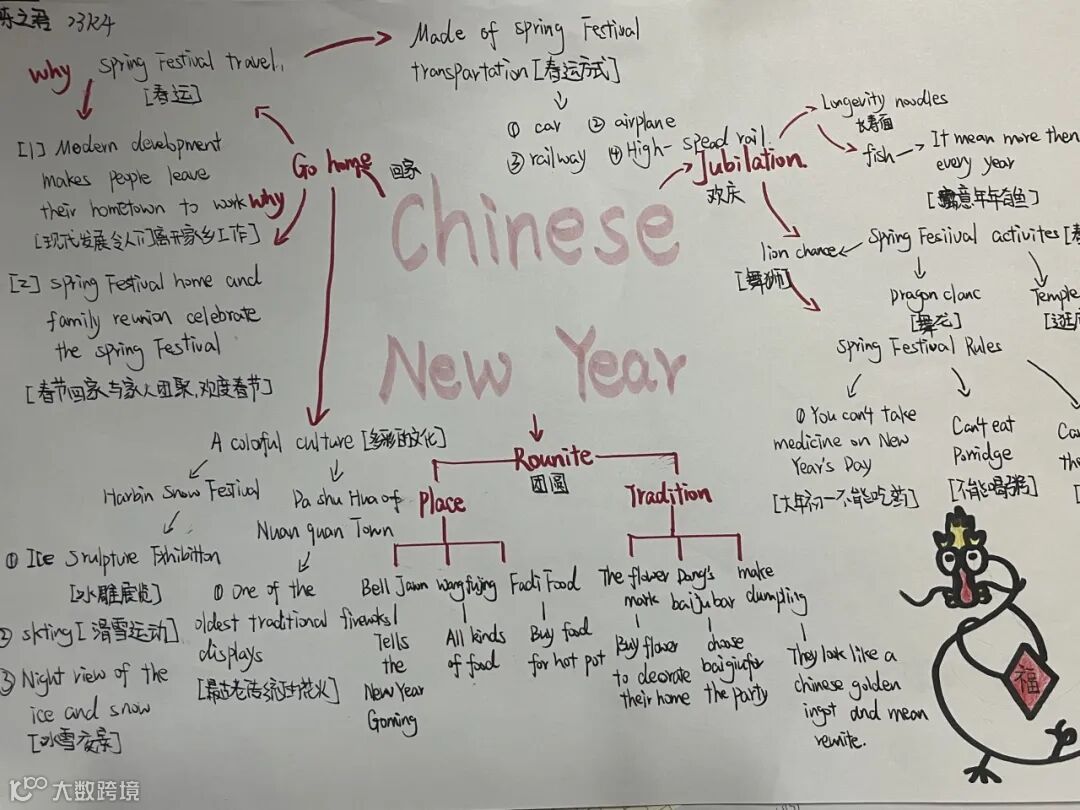 陈之涵 23K4
why
Spring Festival travel.
[春运]
Made of Spring Festival
transpartation [春运方式]
① car ② airplane
③ railway ④ High-spead rail.
[1] Modern development
makes people leave
their hometown to work
[现代发展令人们离开家乡工作]
why
[2] Spring Festival home and
family reunion celebrate
the spring Festival
[春节回家与家人团聚,欢度春节]
Go home
回家
Chinese
New Year
Jubilation.
欢庆
Longevity noodles
长寿面
fish
It mean more then
every year
[寓意年年有鱼]
Spring Fesiival activites
lion chance
[舞狮]
Dragon clanc
[舞龙]
Temple
[逛
Spring Festival Rules
① You can't take
medicine on New
Year's Day
[大年初一不能吃药]
Can't eat
Porridge
[不能喝粥]
Ca
the
A colorful culture [多彩的文化]
Harbin Snow Festival
① Ice Srulpture Exhibition
[冰雕展览]
② skting [滑雪运动]
③ Night view of the
ice and snow
[冰雪夜景]
Da shu Hua of
Nuan quan Town
① One of the
oldest traditional fireworks
displays
Rounite
团圆
Place
Bell Jawn
Tells
the
New Year
Goming
wangfujing
All kinds
of food
Fadi Food
Buy food
for hot pot
Tradition
The flower
mark
Buy flower
to decorate
their home
Dang's
baijubar
choose
baigiufor
the party
make
dumpling
They look like a
chinese golden
ingot and mean
reunite.
福
大数跨境